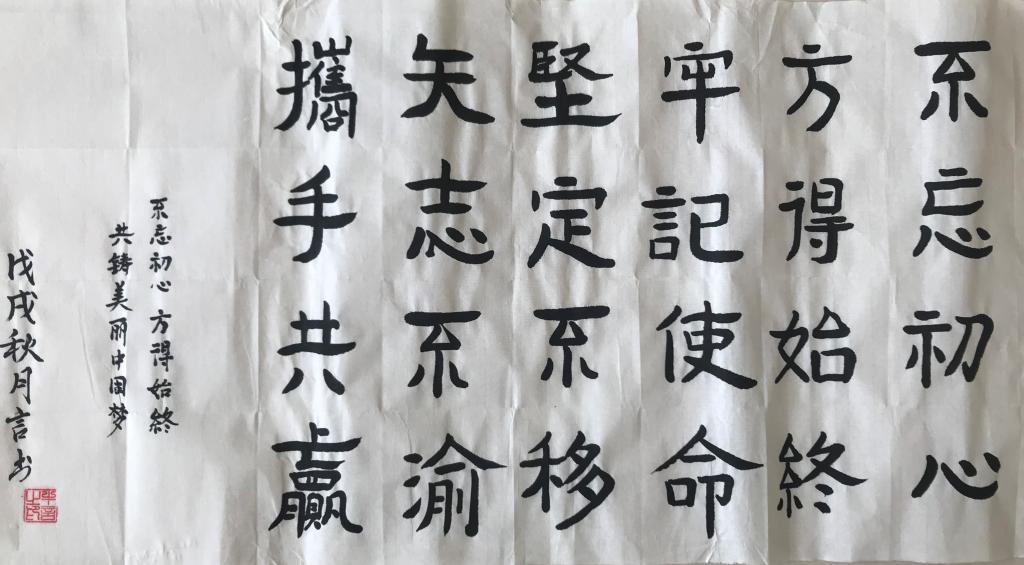 不忘初心
方得始終
牢記使命
堅定不移
矢志不渝
攜手共贏
不忘初心 方得始終
共铸美丽中国梦
戊戌秋月言书